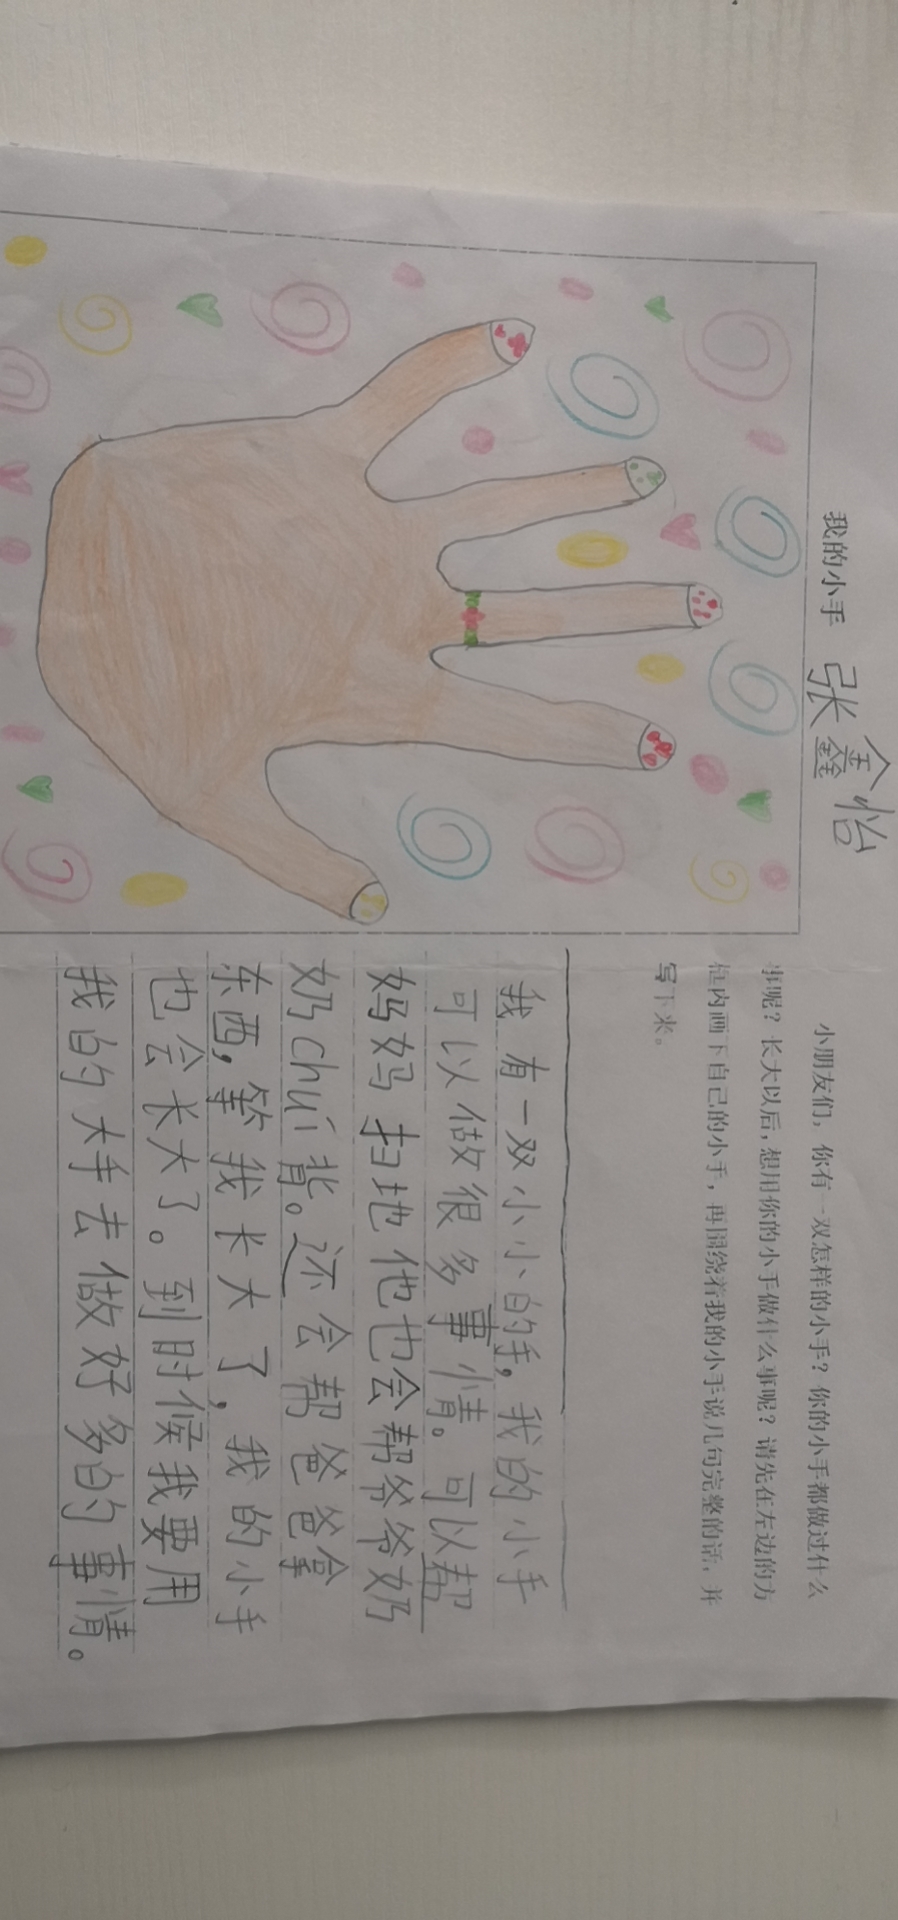 我的小手 张鑫怡
小朋友们，你有一双怎样的小手？你的小手都做过什么
事呢？长大以后，想用你的小手做什么事呢？请先在左边的方
框内画下自己的小手，再围绕着我的小手说几句完整的话，并
写下来。
我有一双小小的手，我的小手
可以做很多事情。可以帮
妈妈扫地他也会帮爷爷奶
奶chuí背。还会帮爸爸拿
东西，等我长大了，我的小手
也会长大了。到时候我要用
我的大手去做好多的事情。